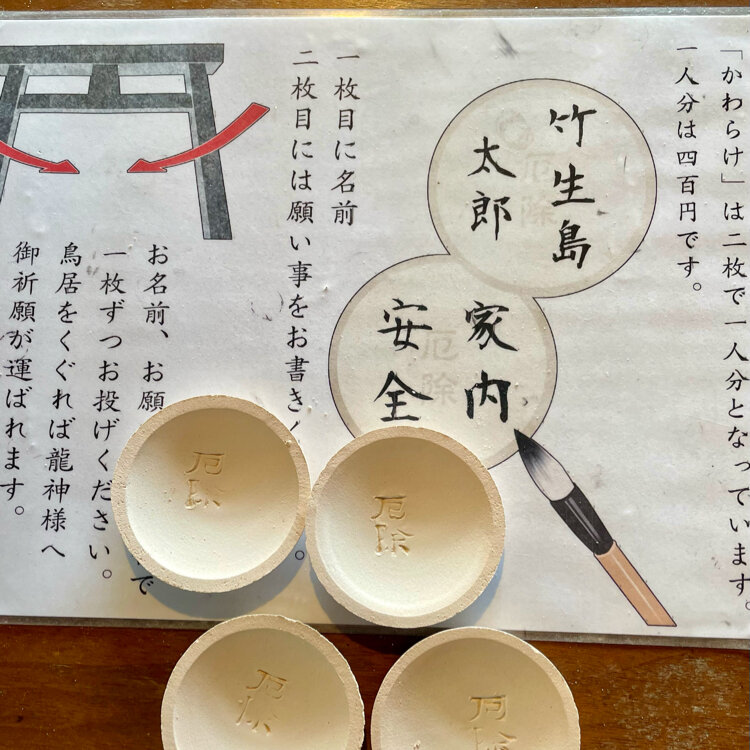 「かわらけ」は二枚で一人分となっています。
一人分は四百円です。
竹生島
太郎
家内
安全
一枚目に名前
二枚目には願い事をお書きく
。
お名前、お願
で
一枚ずつお投げください。
鳥居をくぐれば龍神様へ
御祈願が運ばれます。
厄除
厄除
厄除
厄除
厄除
厄除